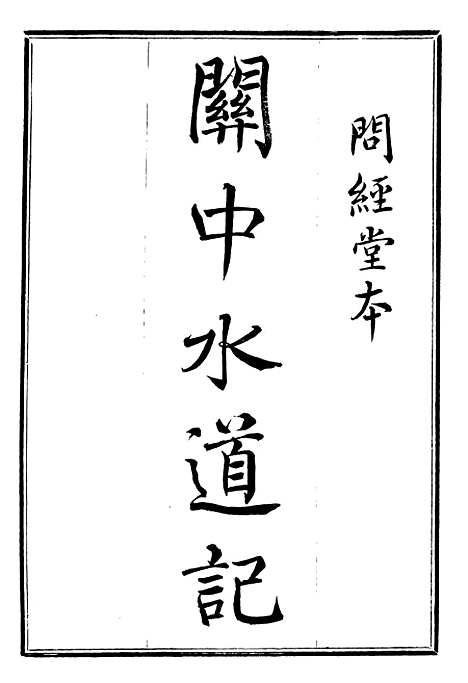 問經堂本
關中水道記